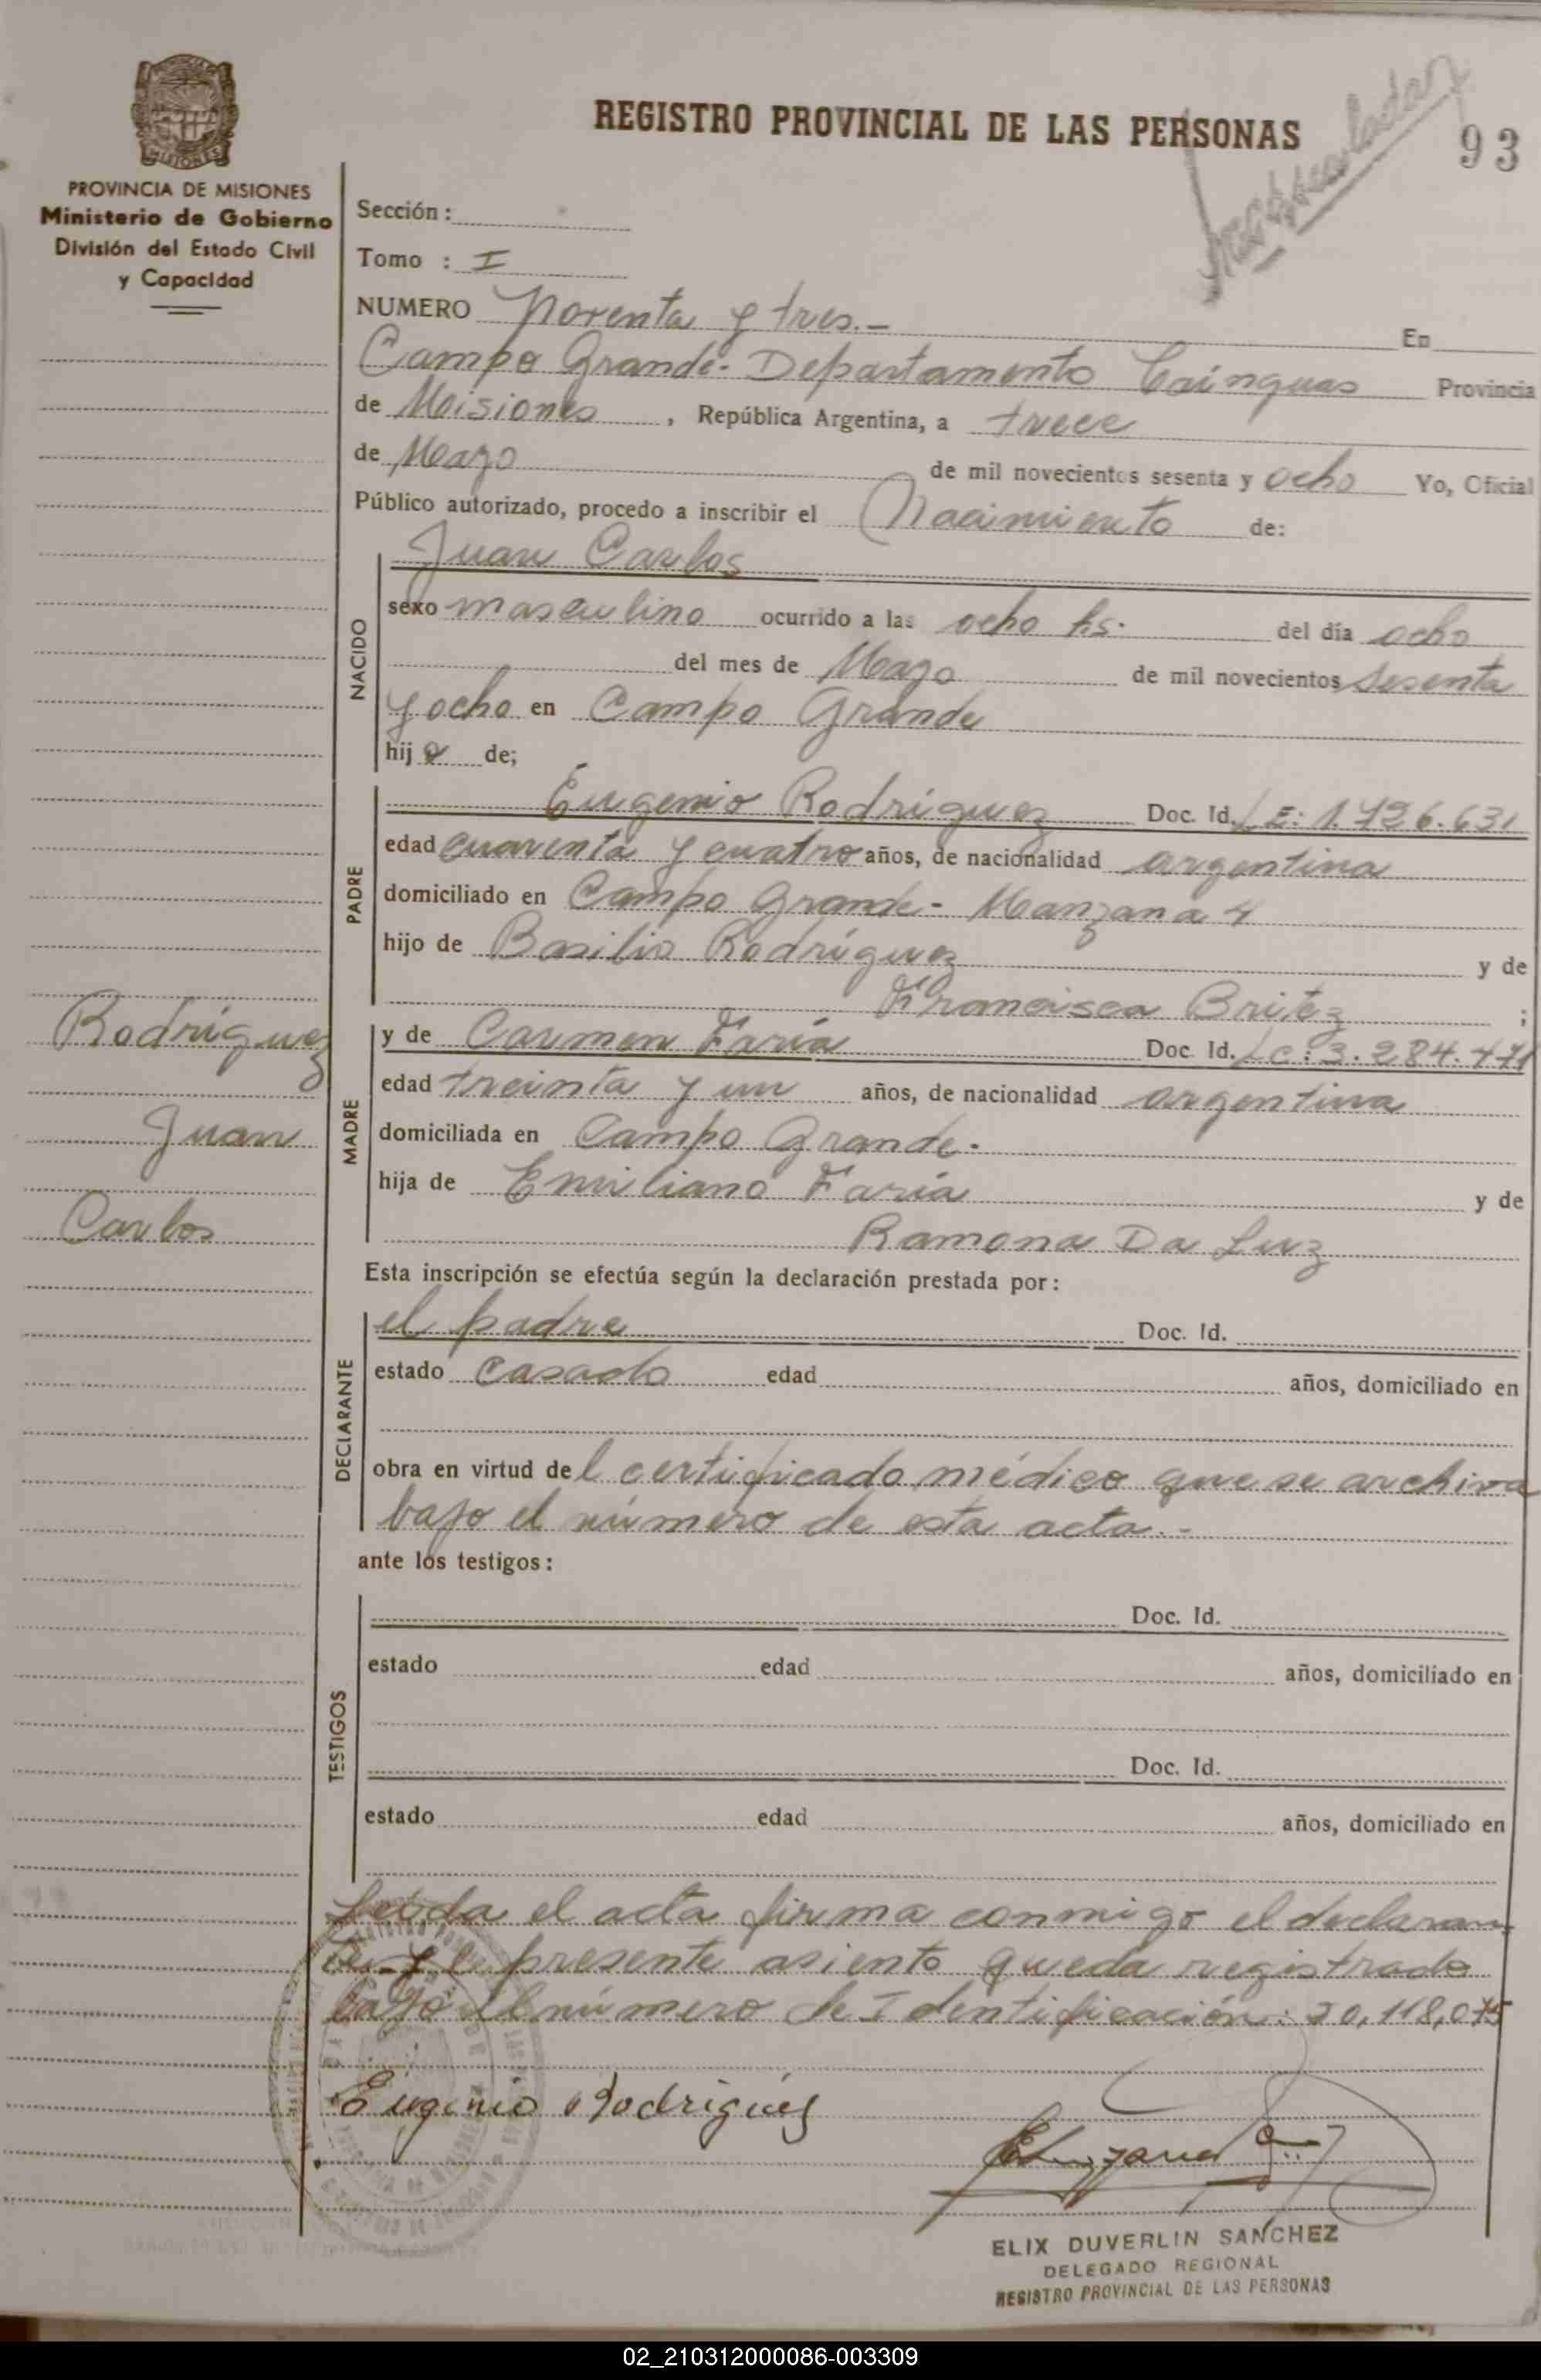 REGISTRO PROVINCIAL DE LAS PERSONAS
93
MISIONES
PROVINCIA DE MISIONES
Ministerio de Gobierno
División del Estado Civil
y Capacidad
Sección:
Tomo : I
NUMERO Noventa y tres.- En
Campo Grande- Departamento Cainguas Provincia
de Misiones, República Argentina, a trece
de Mazo de mil novecientos sesenta y ocho Yo, Oficial
Público autorizado, procedo a inscribir el Nacimiento de:
NACIDO
Juan Carlos
sexo masculino ocurrido a las ocho hs. del día ocho
del mes de Mazo de mil novecientos sesenta
y ocho en Campo Grande
hijo de;
PADRE
Eugenio Rodríguez Doc. Id. LE: 1.726.631
edad cuarenta y cuatro años, de nacionalidad argentina
domiciliado en Campo Grande- Manzana 4
hijo de Basilio Rodríguez y de
Francisca Britez ;
Rodríguez
Juan
Carlos
MADRE
y de Carmen Faría Doc. Id. LC: 3.284.471
edad treinta y un años, de nacionalidad argentina
domiciliada en Campo Grande.
hija de Emiliano Faría y de
Ramona Da Luz
Esta inscripción se efectúa según la declaración prestada por:
DECLARANTE
el padre Doc. Id.
estado casado edad años, domiciliado en
obra en virtud del certificado médico que se archiva
bajo el número de esta acta.-
ante los testigos:
TESTIGOS
Doc. Id.
estado edad años, domiciliado en
Doc. Id.
estado edad años, domiciliado en
Leida el acta firma conmigo el declaran
te y el presente asiento queda registrado
bajo el número de Identificación: 20,118,075
Eugenio Rodrigues
ELIX DUVERLIN SANCHEZ
DELEGADO REGIONAL
REGISTRO PROVINCIAL DE LAS PERSONAS
02_210312000086-003309